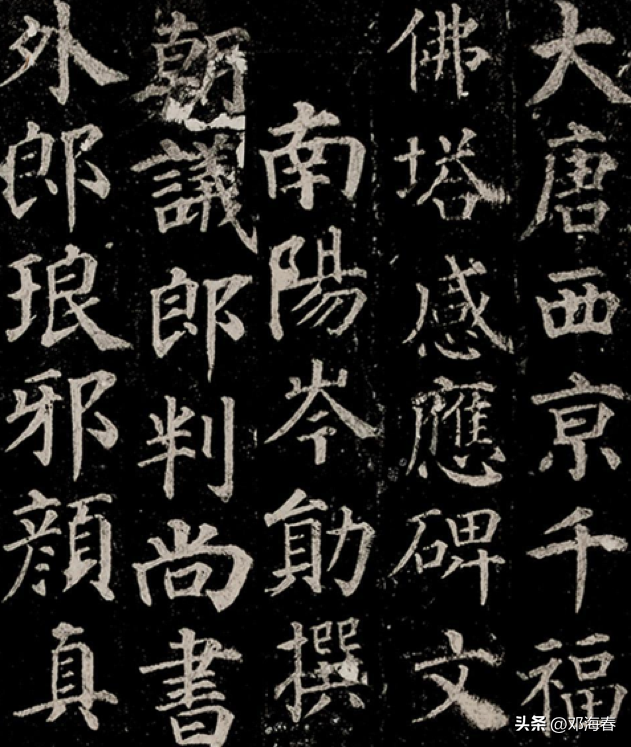 大唐西京千福
佛塔感應碑文
南陽岑勛撰
朝議郎判尚書
外郎琅邪顏真
头条 @邓海春